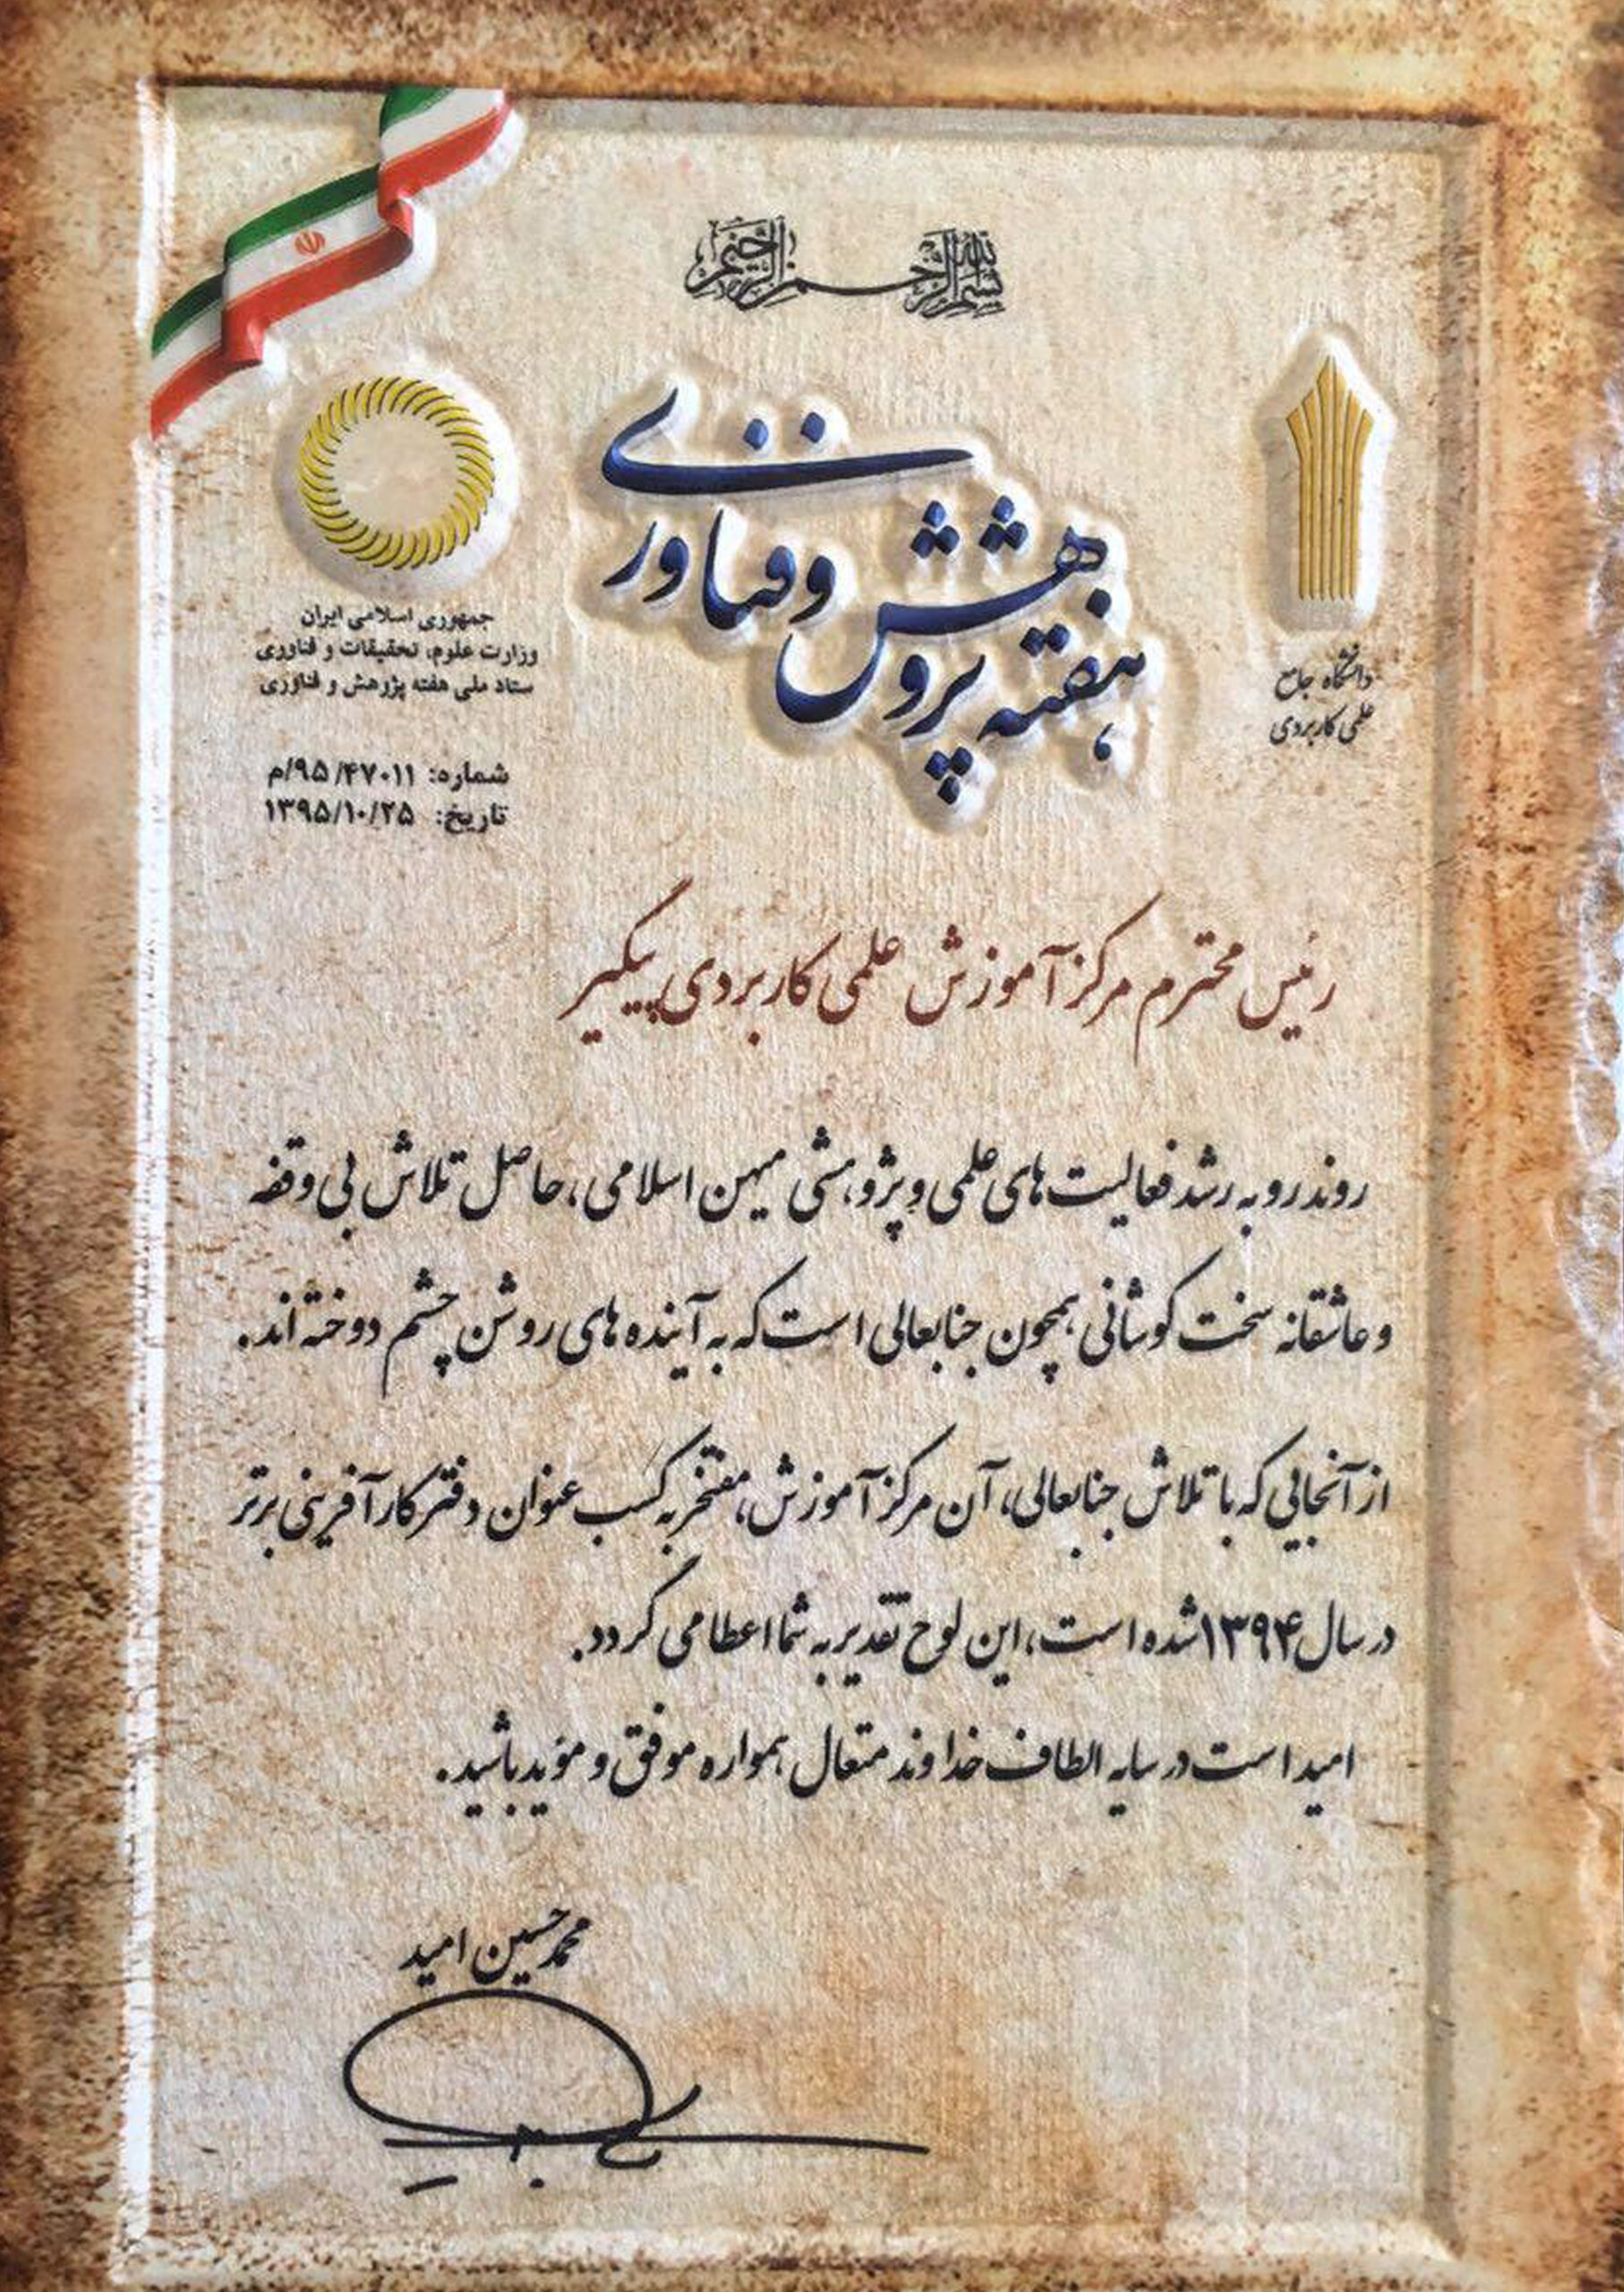 بسم الله الرحمن الرحیم
هفته پژوهش و فناوری
جمهوری اسلامی ایران
وزارت علوم، تحقیقات و فناوری
ستاد ملی هفته پژوهش و فناوری
دانشگاه جامع
علمی کاربردی
شماره: ۹۵/۴۷۰۱۱/م
تاریخ: ۱۳۹۵/۱۰/۲۵
رئیس محترم مرکز آموزش علمی کاربردی پیگیر
روند رو به رشد فعالیت های علمی و پژوهشی میهن اسلامی، حاصل تلاش بی وقفه
و عاشقانه سخت کوشانی همچون جنابعالی است که به آینده های روشن چشم دوخته اند.
از آنجایی که با تلاش جنابعالی، آن مرکز آموزش، مفتخر به کسب عنوان دفتر کارآفرینی برتر
در سال ۱۳۹۴ شده است، این لوح تقدیر به شما اعطا می گردد.
امید است در سایه الطاف خداوند متعال همواره موفق و موید باشید.
محمد حسین امید